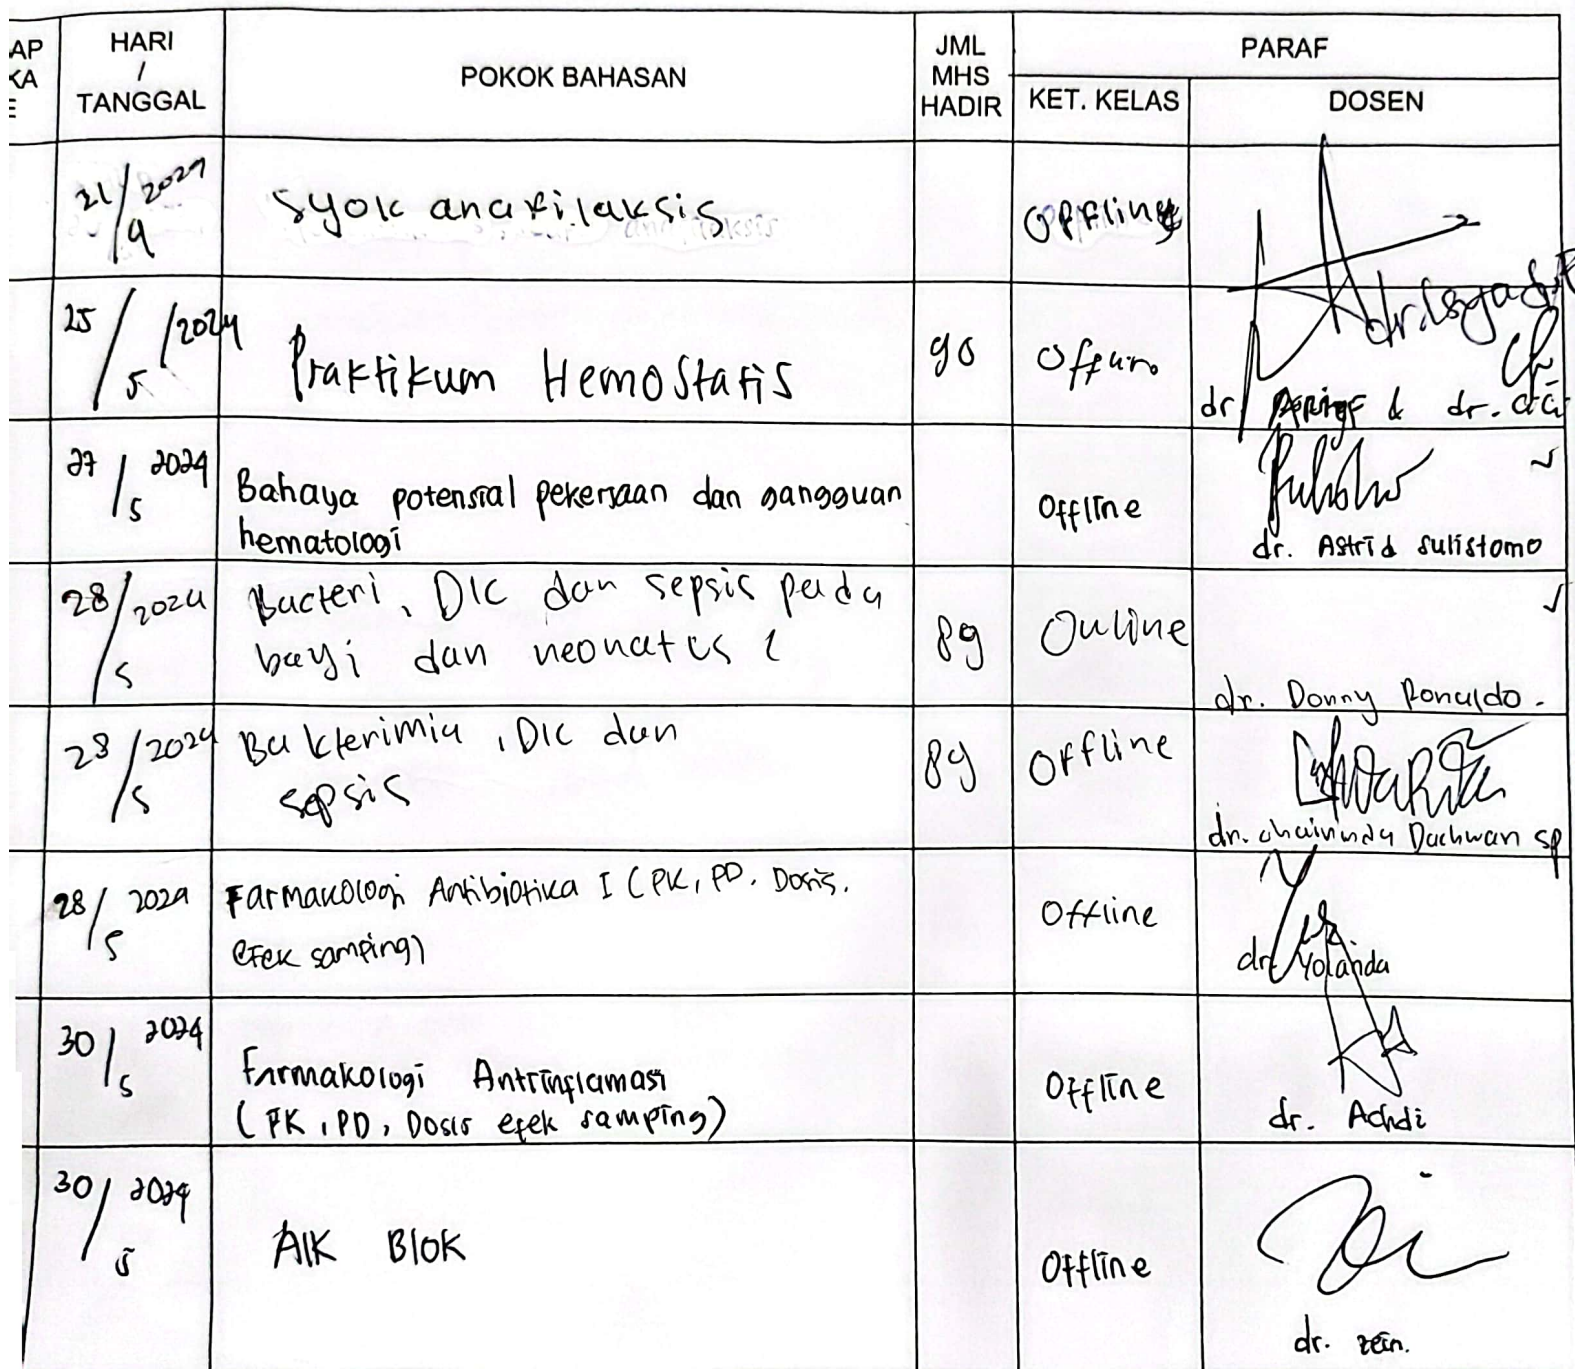 AP
KA
E
HARI
/
TANGGAL
POKOK BAHASAN
JML
MHS
HADIR
PARAF
KET. KELAS
DOSEN
21/9 2024
Syok anafilaksis
Offline
25/5/2024
Praktikum Hemostatis
90
Offline
dr & dr.
27/5 2024
Bahaya potensial pekerjaan dan gangguan
hematologi
Offline
dr. Astrid Sulistomo
28/5 2024
Bacteri, DIC dan sepsis pada
bayi dan neonatus
89
Online
dr. Donny Ronaldo.
28/5 2024
Bakterimia, DIC dan
sepsis
89
Offline
dr. Dachwan sp
28/5 2024
Farmakologi Antibiotika I (PK, PD. Dosis.
efek samping)
Offline
dr. Yolanda
30/5 2024
Farmakologi Antiinflamasi
(PK, PD, Dosis efek samping)
Offline
dr. Achdi
30/5 2024
AIK BLOK
Offline
dr. zein.